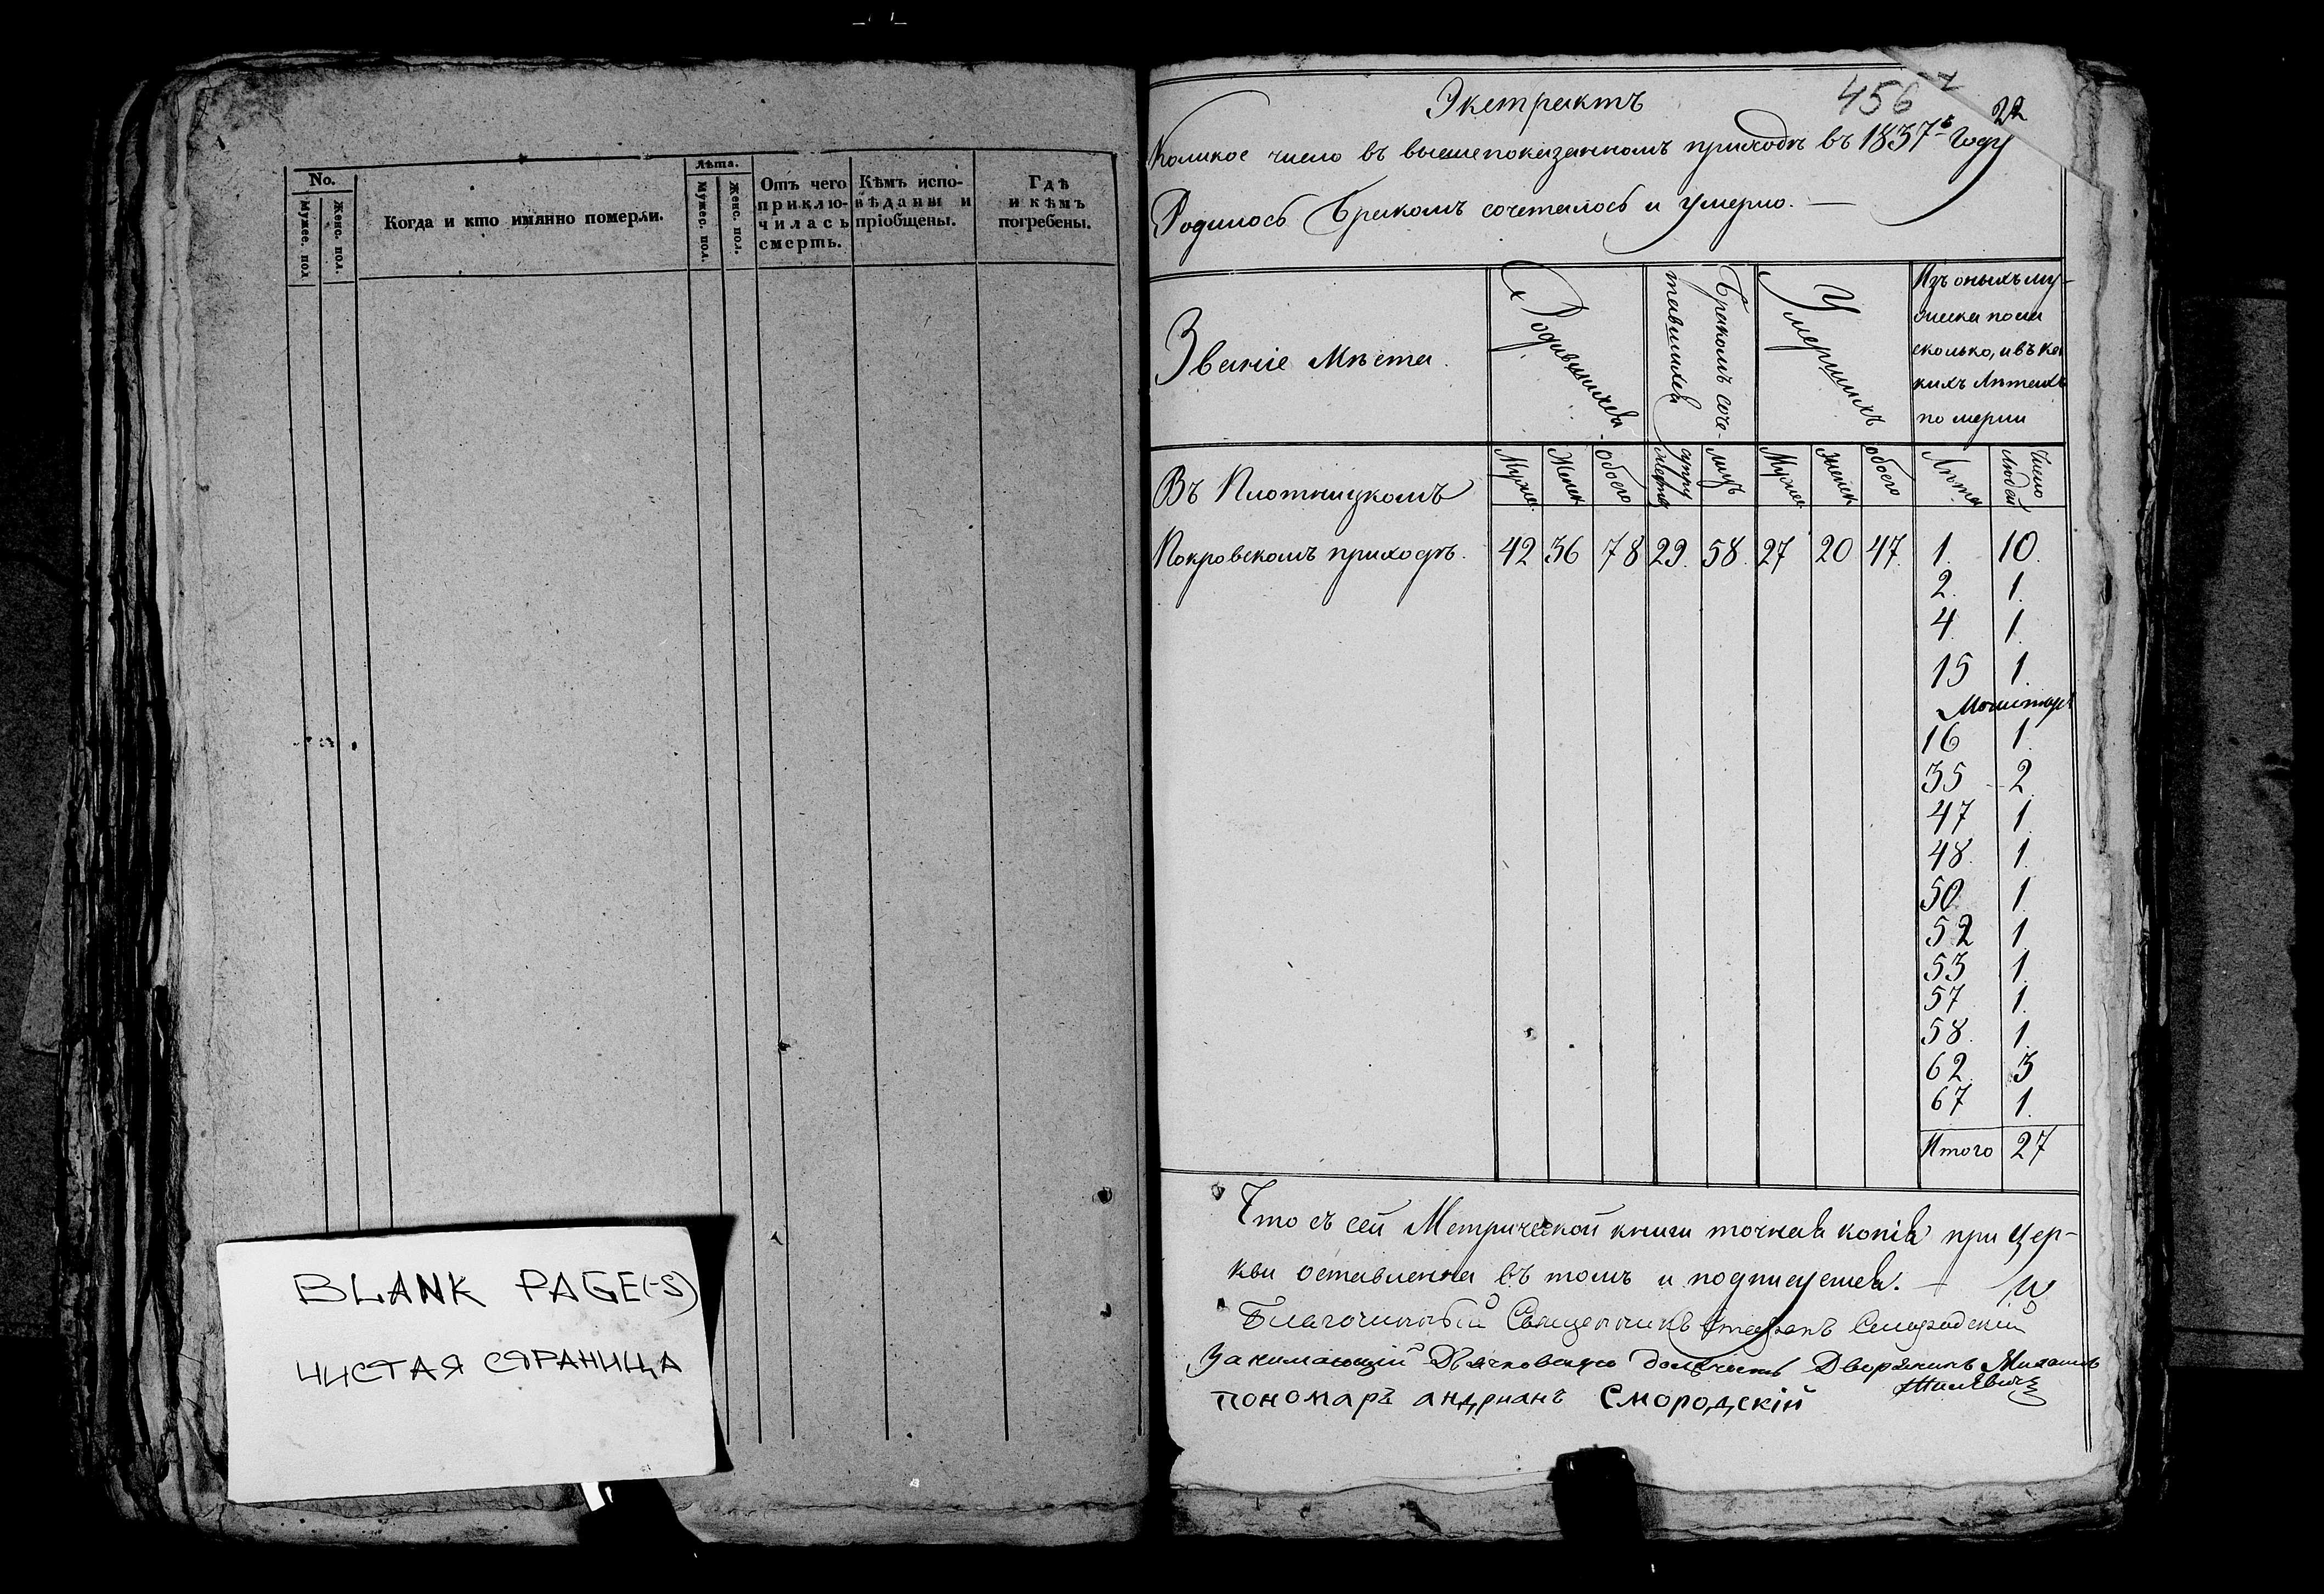 No.
Мужес. пол.
Женс. пол.
Когда и кто имянно померли.
Лѣта.
Мужес. пол.
Женс. пол.
Отъ чего
приклю-
чилась
смерть.
Кѣмъ испо-
вѣданы и
пріобщены.
Гдѣ
и кѣмъ
погребены.
BLANK PAGE(-S)
ЧИСТАЯ СТРАНИЦА
456
22
Экстрактъ
Коликое число въ вышепоказанномъ приходѣ въ 1837 году
Родилось бракомъ сочеталось и умерло. —
Званіе Мѣста.
Родившихся
Бракомъ соче-
тавшихся
Умершихъ
Изъ оныхъ му-
жеска пола
сколько, и въ ка
кихъ Лѣтахъ
померли
Въ Плотницкомъ
Мужес. Женск обоего супру жествъ лицъ Мужес женск обоего Лѣта Число Людей
Покровскомъ приходѣ. 42 36 78 29. 58. 27 20 47. 1. 10.
2. 1.
4. 1.
15 1.
16 1.
35 - 2.
47 1.
48. 1.
50. 1.
52 1.
53 1.
57 1.
58. 1.
62. 3
67 1.
Итого 27
Что съ сей Метрической книги точная копія при цер-
кви оставлена въ томъ и подписуемся. —
Благочинный Священникъ Стефанъ Смородскій
Занимающій Дьячковскую должность Дворянинъ
пономаръ андрианъ Смородскій